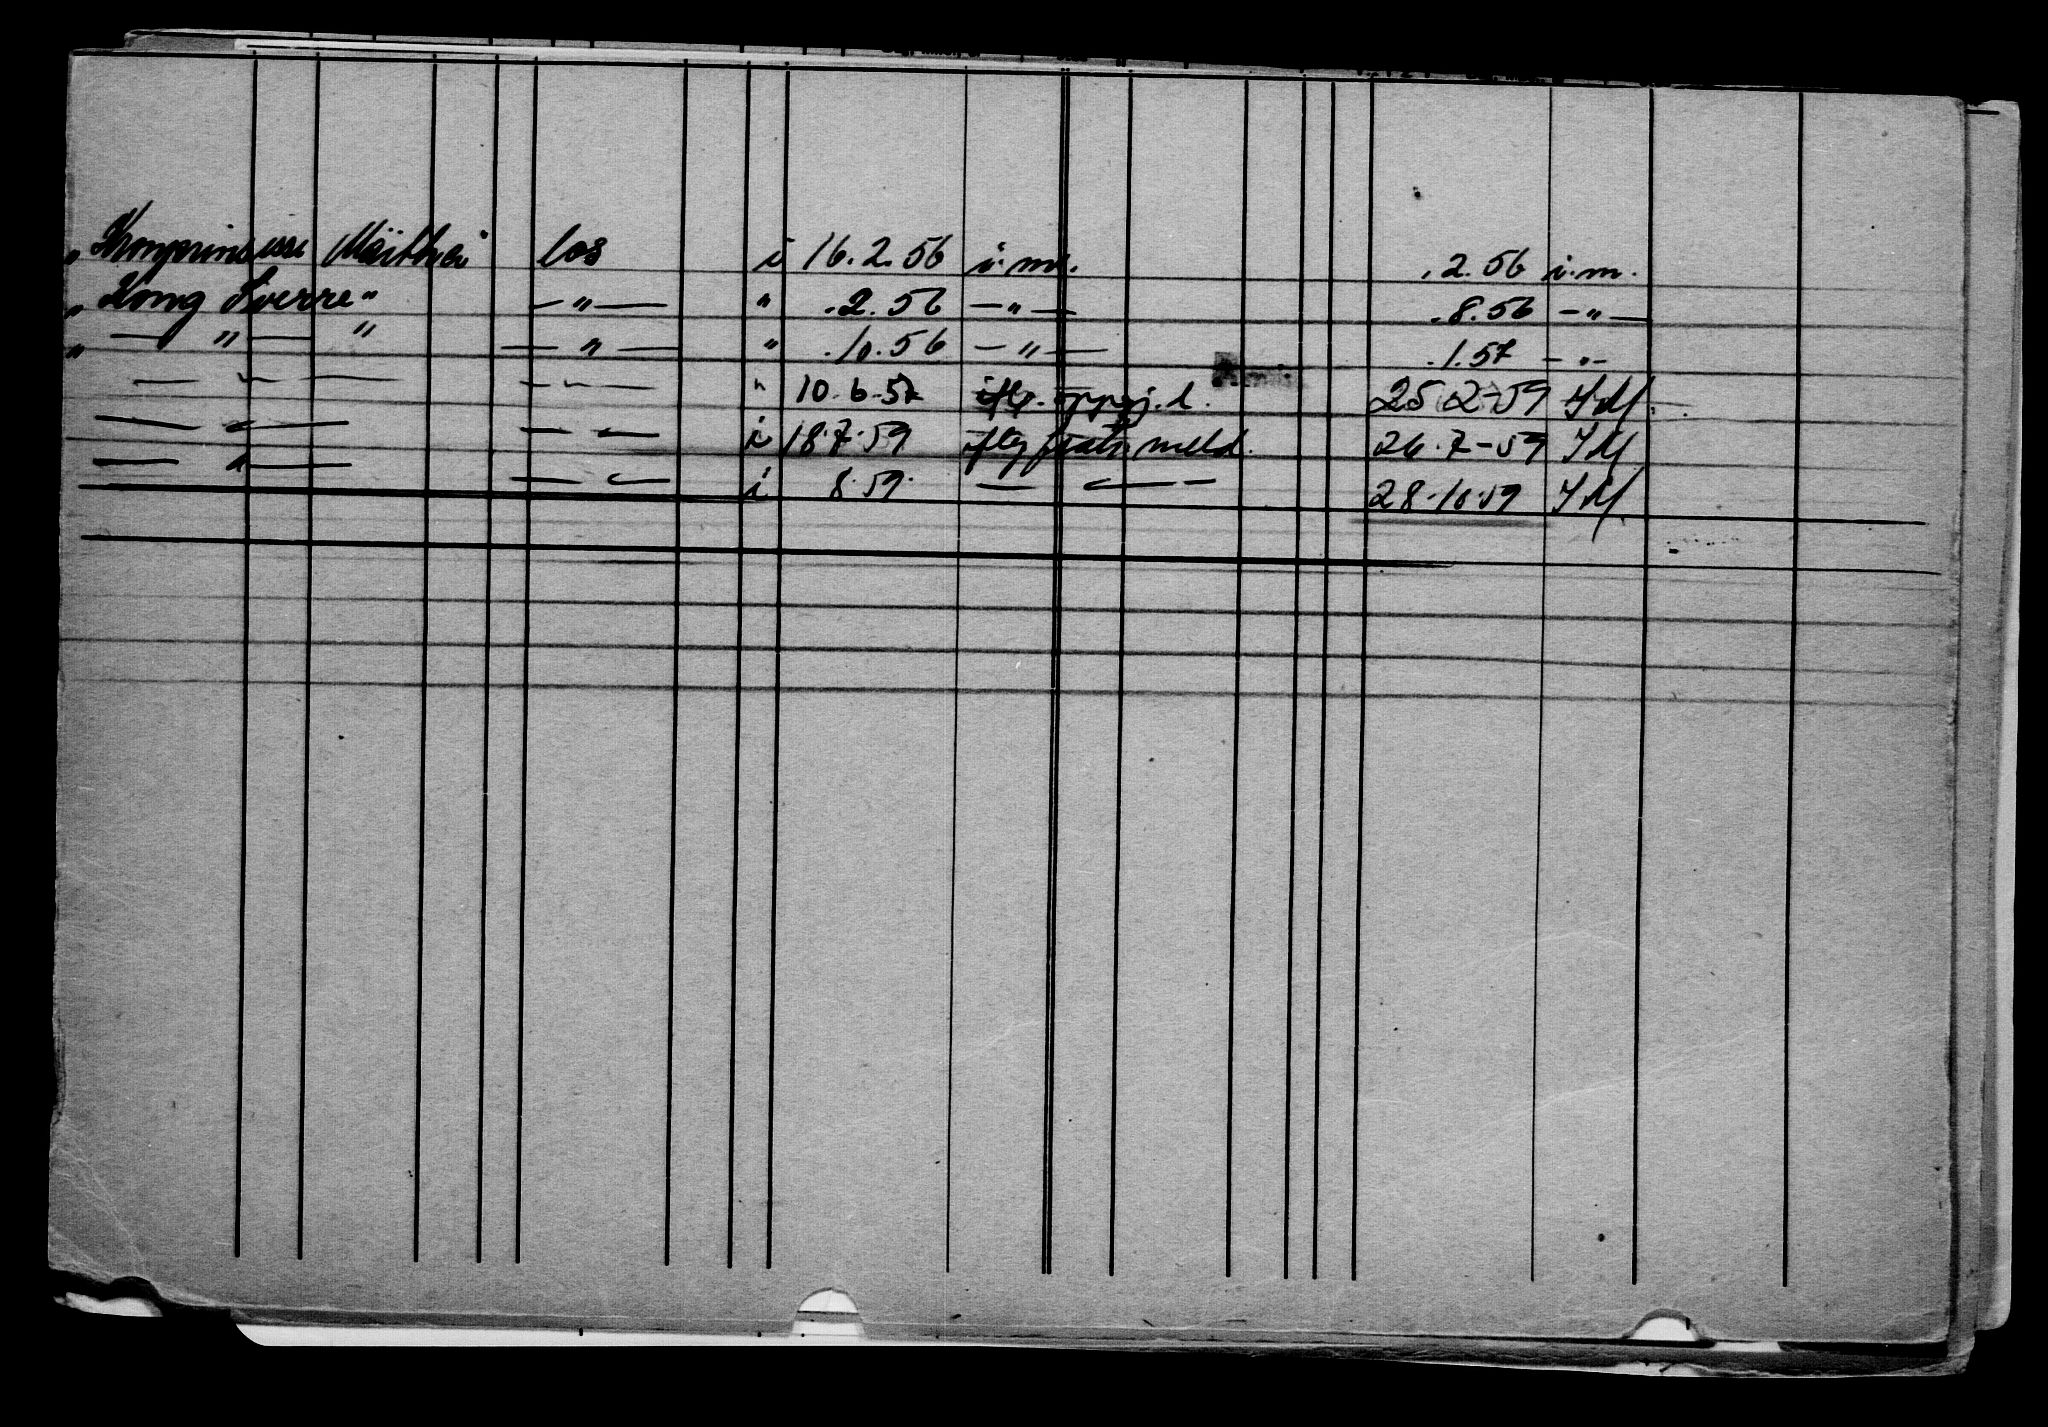 „ Kronprinsesse Märtha“ los i 16.2.56 i.m. .2.56 i.m.
„ Kong Sverre“ — „ — " .2.56 — „ — .8.56 — „ —
„ — " — " — " — " .10.56 — " — .1.57 — " —
— " — — " — " 10.6.57 iflg. oppgj. l. 25.2-59 I.M.
— " — — " — i 18.7.59 iflg meld. 26.7-59 I M
— " — — " — i 8.59. — " — 28.10.59 I M